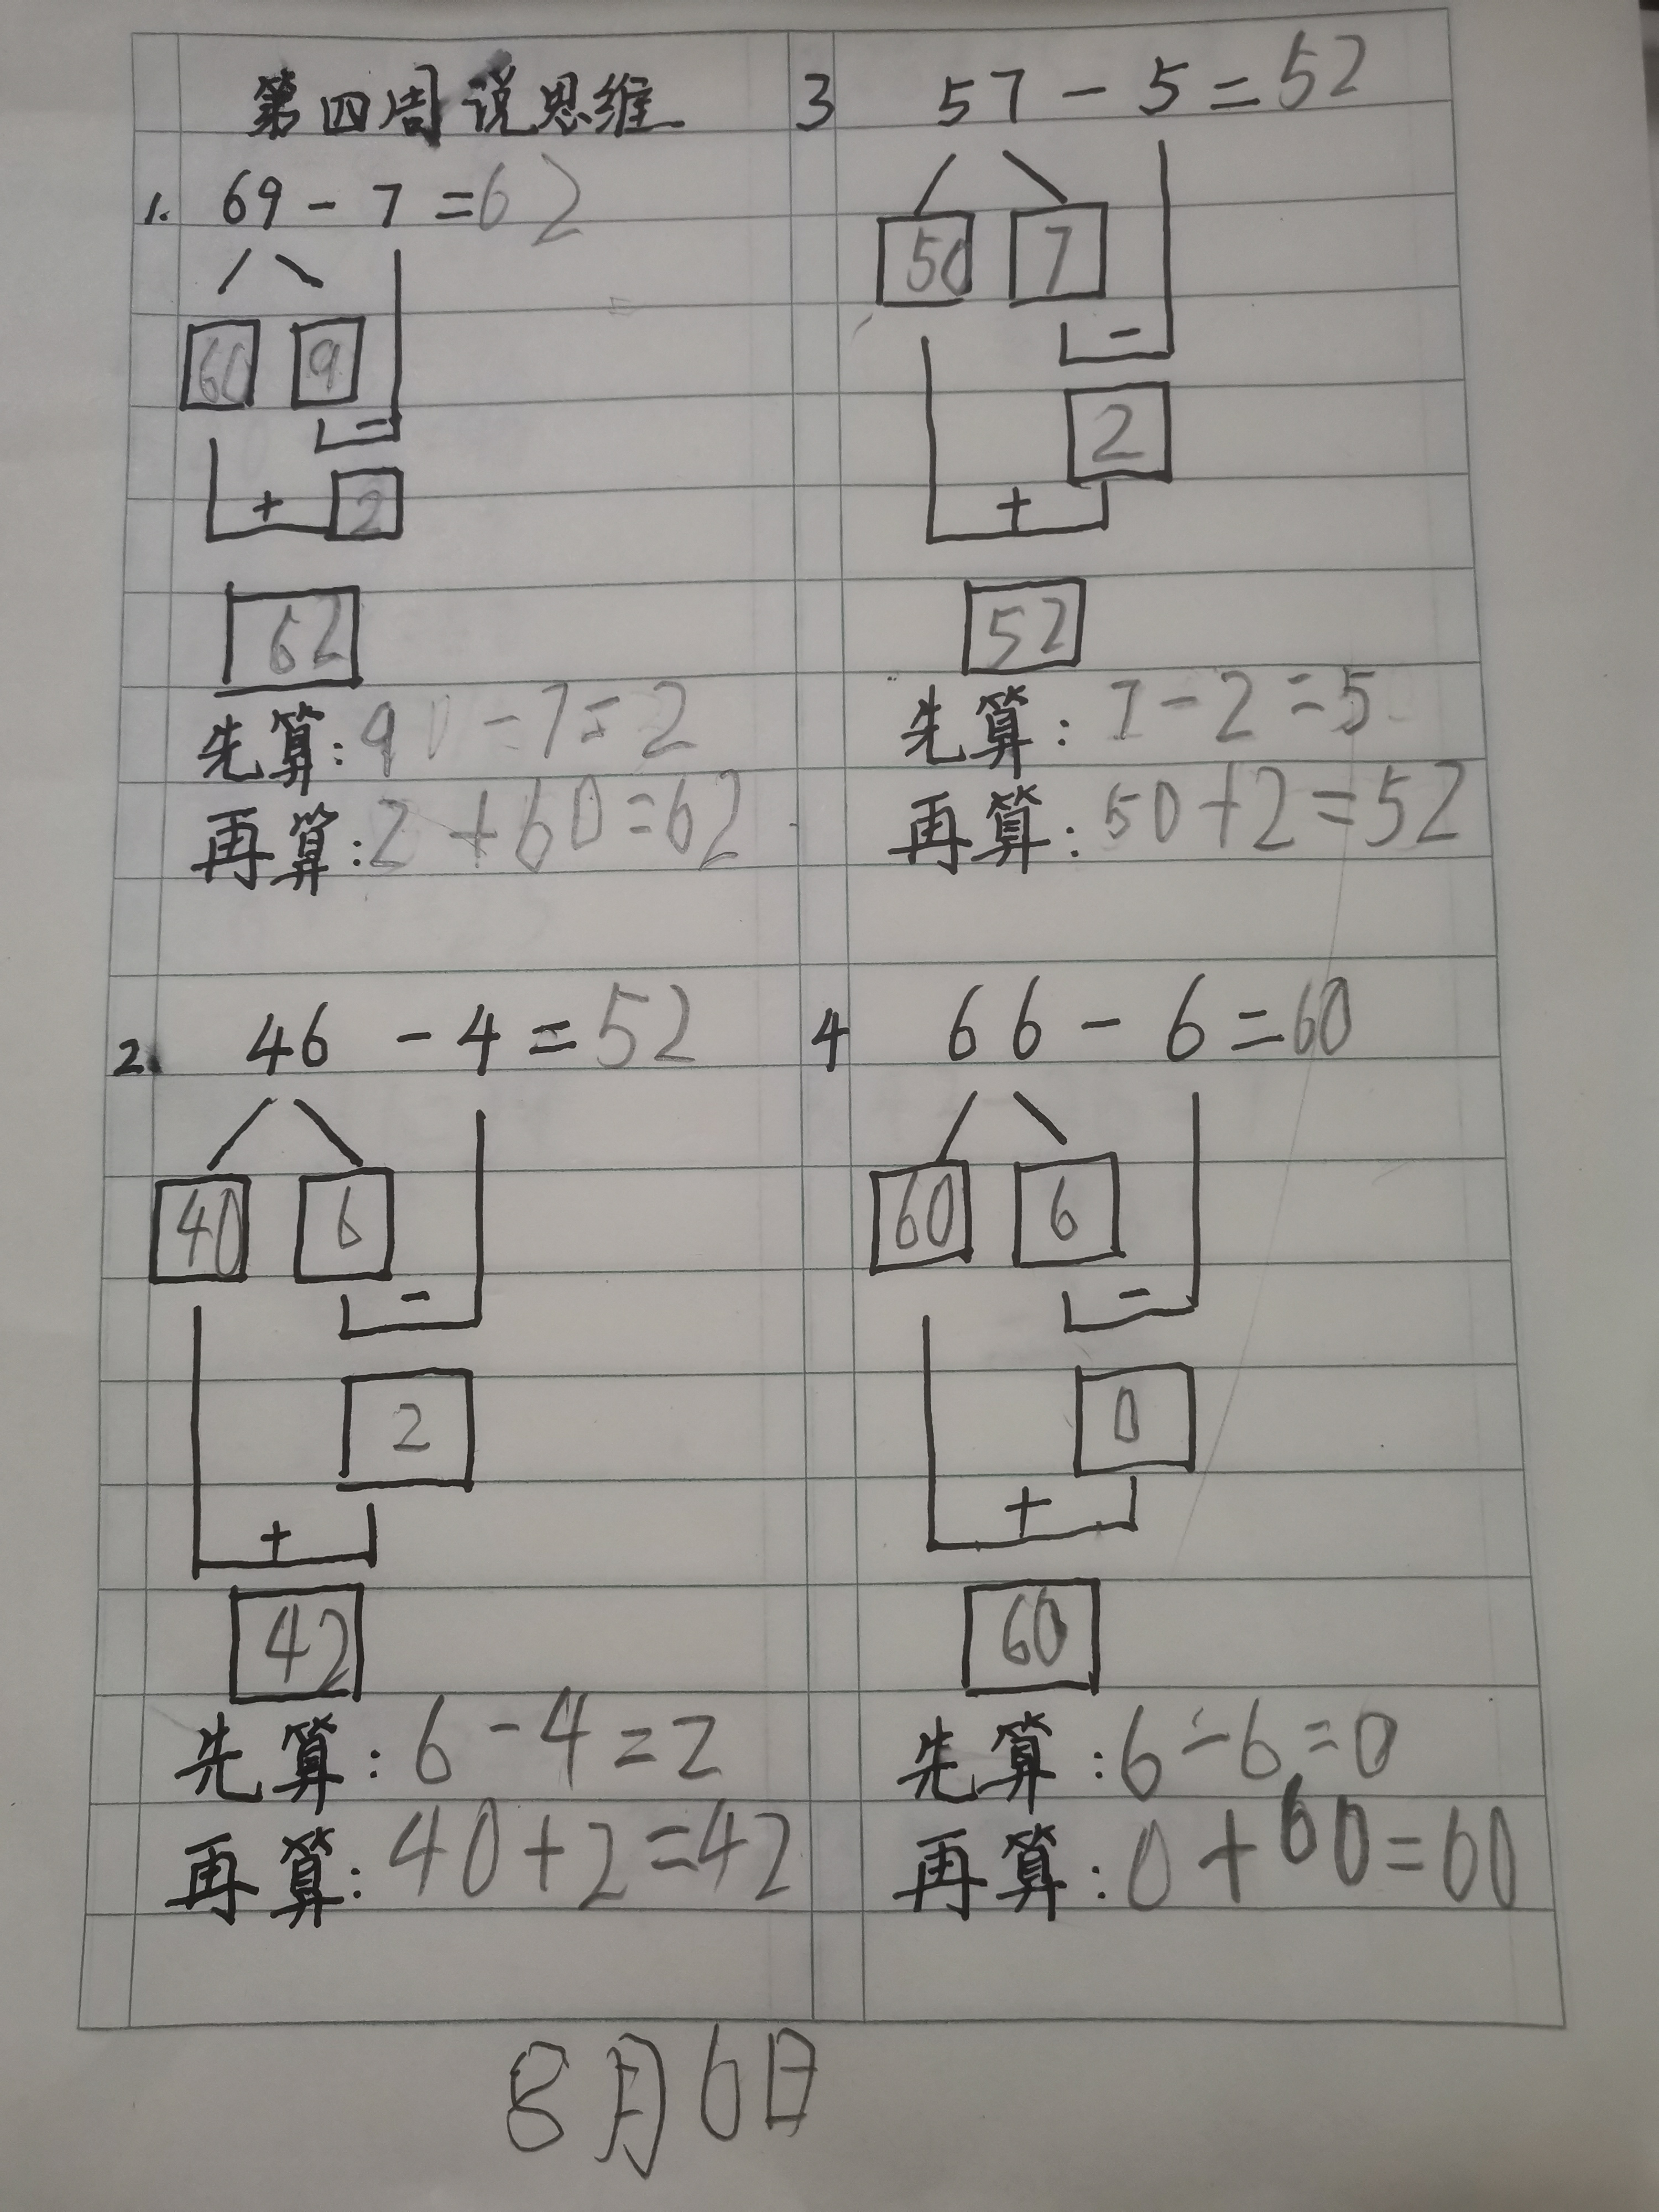 第四周说思维
1. 69-7=62
60 9
-
+ 2
62
先算:9-7=2
再算:2+60=62
2. 46-4=52
40 6
-
2
+
42
先算:6-4=2
再算:40+2=42
3 57-5=52
50 7
-
2
+
52
先算:7-2=5
再算:50+2=52
4 66-6=60
60 6
-
0
+
60
先算:6-6=0
再算:0+60=60
8月6日